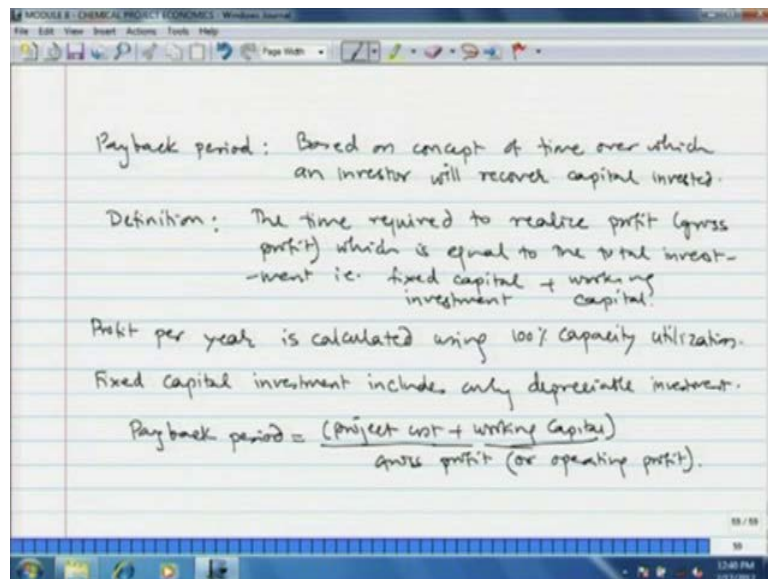 MODULE 8 - CHEMICAL PROJECT ECONOMICS - Windows Journal
File Edit View Insert Actions Tools Help
Page Width
Payback period : Based on concept of time over which
an investor will recover capital invested.
Definition : The time required to realize profit (gross
profit) which is equal to the total invest-
-ment i.e. fixed capital + working
investment capital.
Profit per year is calculated using 100% capacity utilization.
Fixed capital investment includes only depreciable investment.
Payback period = (project cost + working capital)
Gross profit (or operating profit).
59 / 59
59
12:40 PM